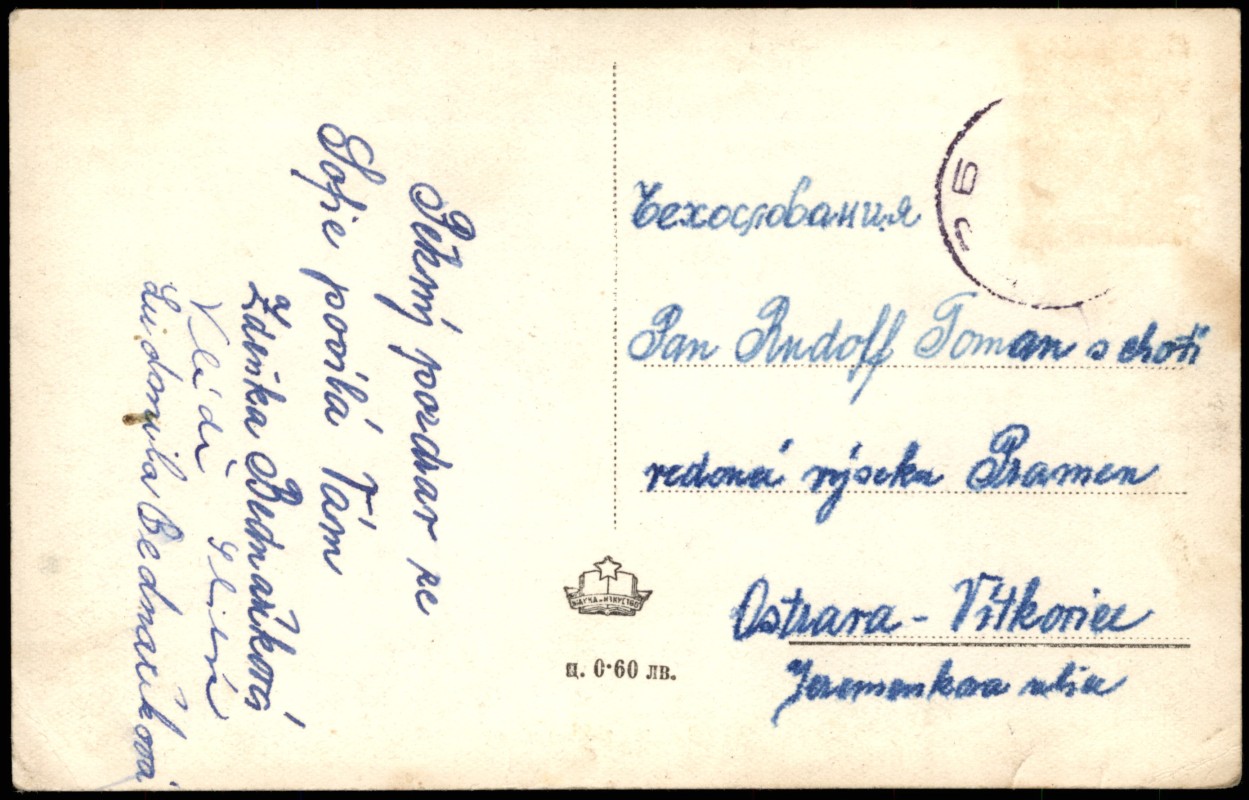 Pěkný pozdrav ze
Sofie posílá Vám
Zdenka Bednaříková
Ludmila Bednaříková
Чехословакия
Pan Rudolf Toman s chotí
vedoucí výseku Pramen
Ostrava - Vítkovice
Jeremenkova ulice
НАУКА И ИЗКУСТВО
ц. 0·60 лв.